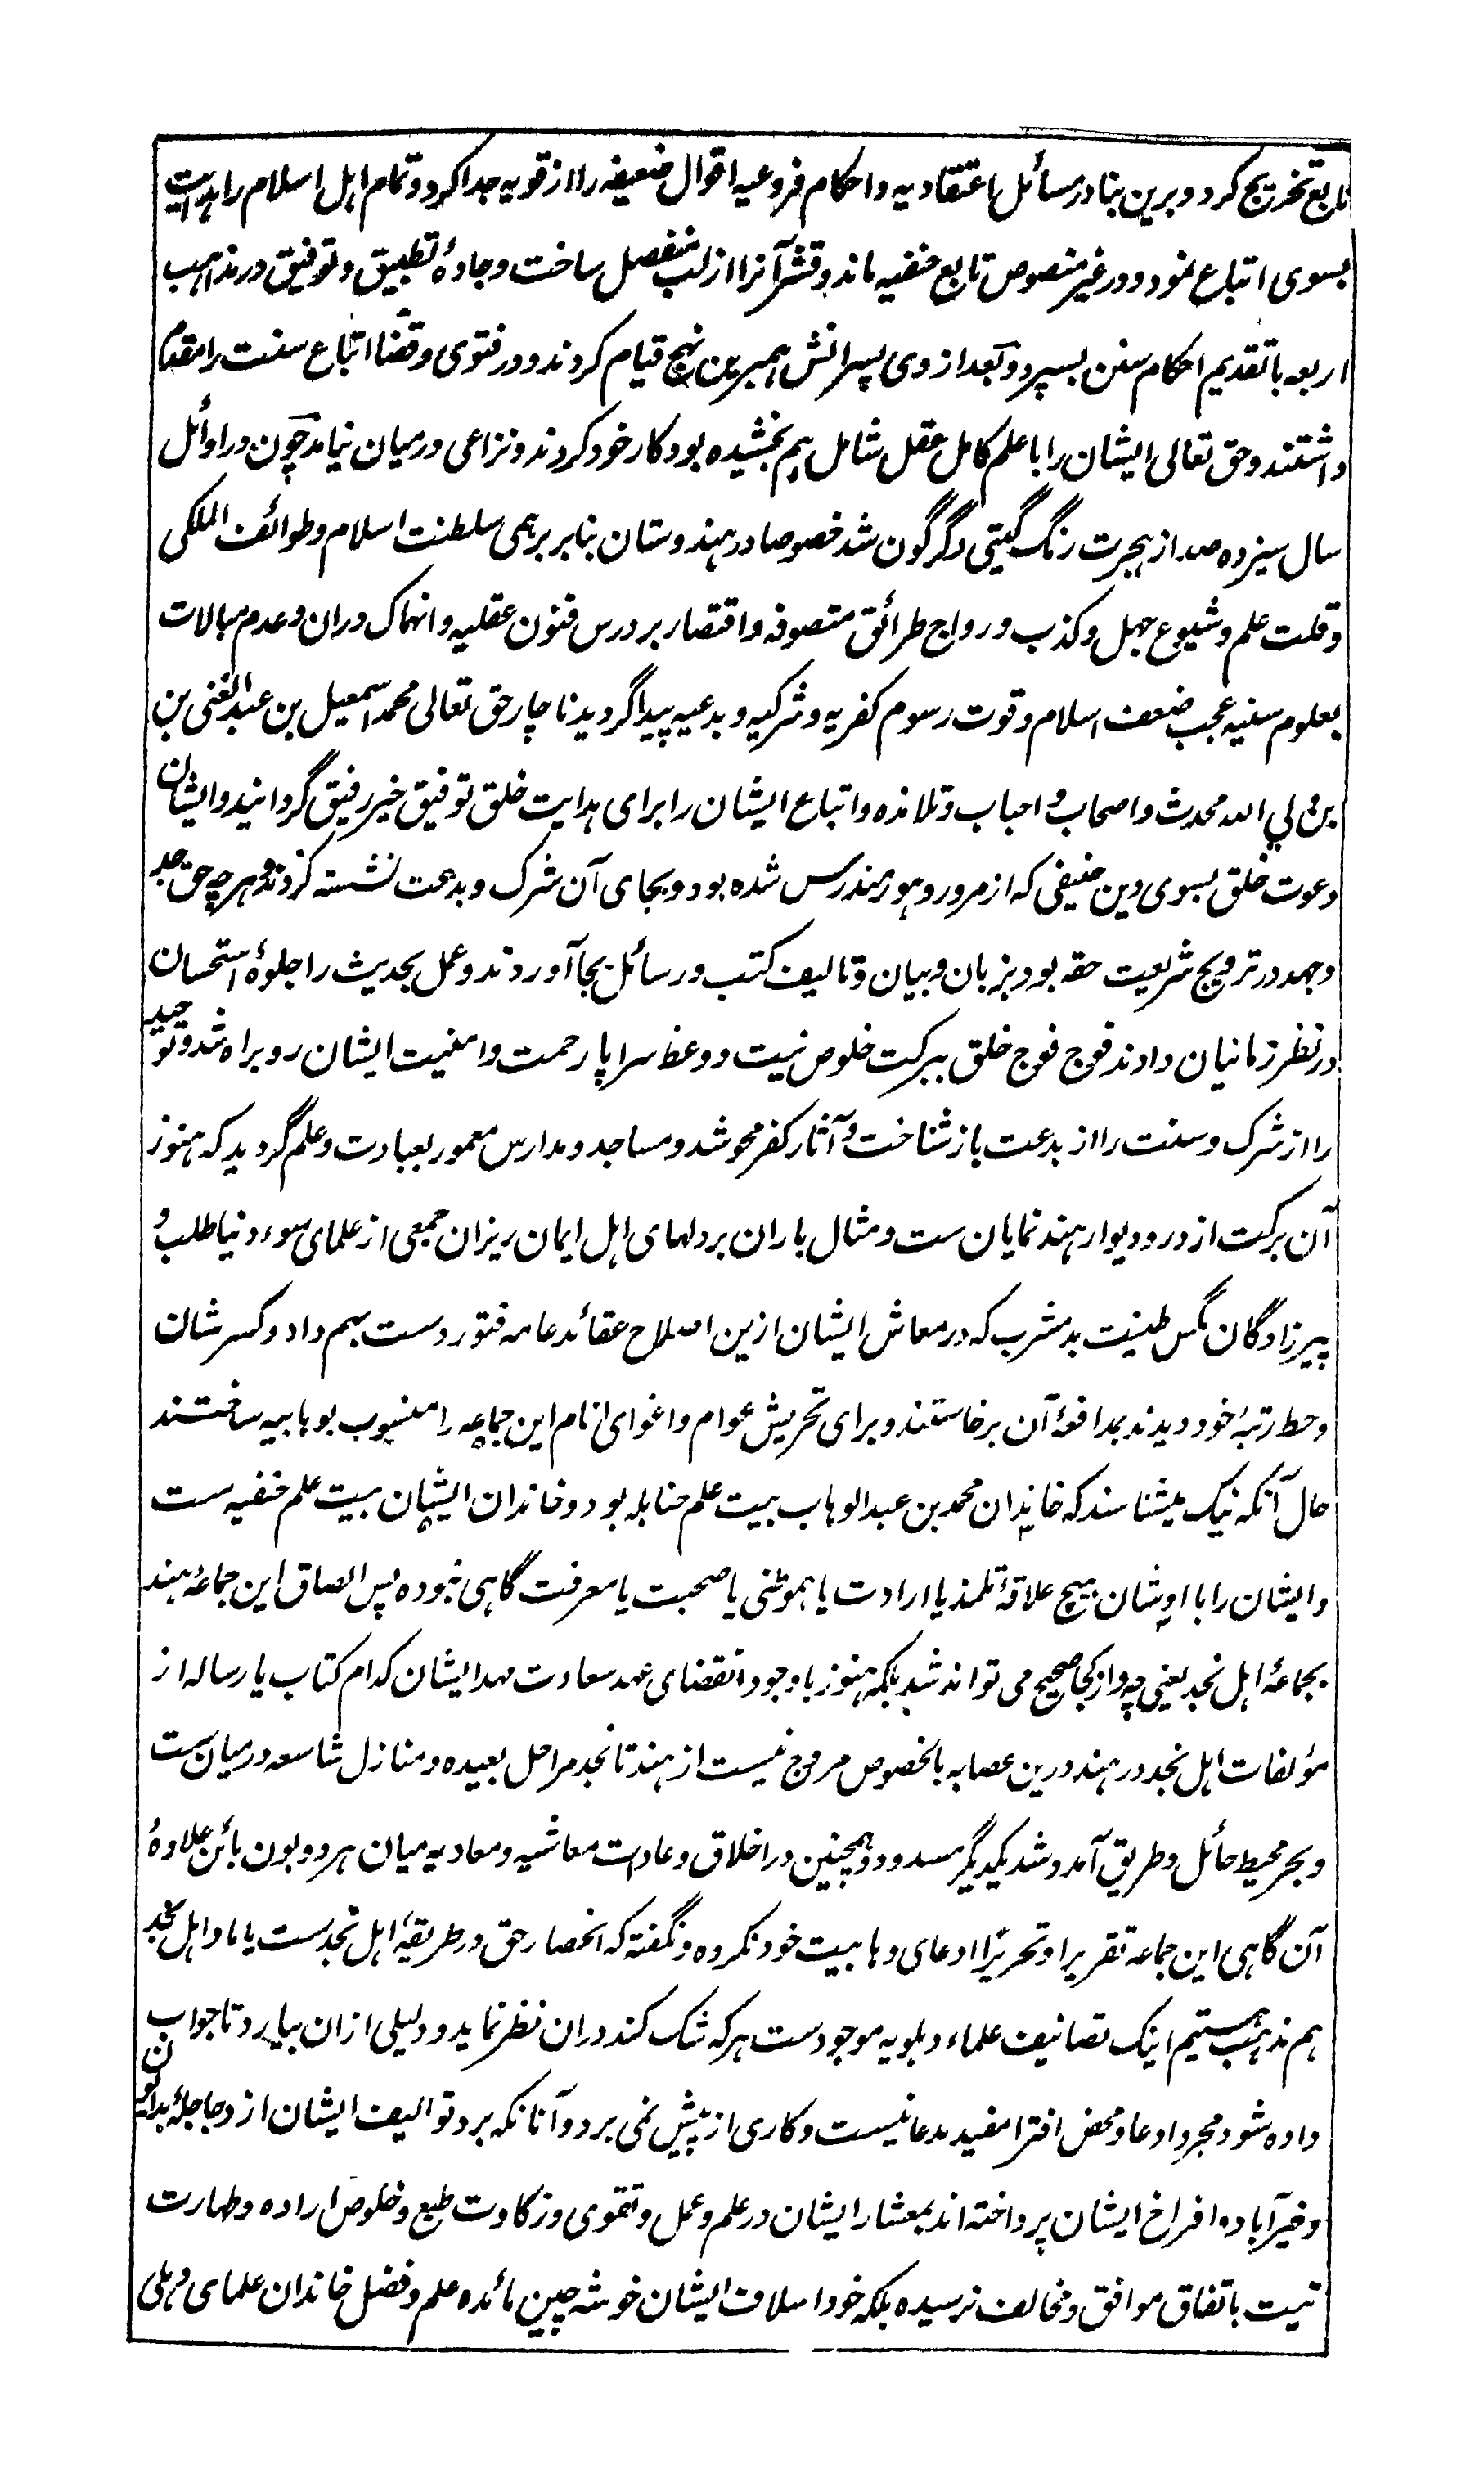 تابع تخریج کرد و برین بنا در مسائل اعتقادیه و احکام فروعیه اقوال ضعیفه را از قویه جدا کرد و تمام اهل اسلام را هدایت
بسوی اتباع نمود و در غیر منصوص تابع حنفیه ماند و قشر آنرا از لب منفصل ساخت و جادهٔ تطبیق و توفیق در مذاهب
اربعه با تقدیم احکام سنن بسپرد و بعد از وی پسرانش همبرین نهج قیام کردند و در فتوی و قضا اتباع سنت را مقدم
داشتند و حق تعالی ایشان را با علم کامل عقل شامل هم بخشیده بود کار خود کردند و نزاعی در میان نیامد چون در اوائل
سال سیزده صد از هجرت رنگ گیتی دگرگون شد خصوصا در هندوستان بنا بر برهمی سلطنت اسلام و طوائف الملکی
و قلت علم و شیوع جهل و کذب و رواج طرائق متصوفه و اقتصار بر درس فنون عقلیه و انهماک دران و عدم مبالات
بعلوم سنیه عجب ضعف اسلام و قوت رسوم کفریه و شرکیه و بدعیه پیدا گردید ناچار حق تعالی محمد اسمعیل بن عبد الغنی بن
بن ولي الله محدث و اصحاب و احباب و تلامذه و اتباع ایشان را برای هدایت خلق توفیق خیر رفیق گردانید و ایشان
دعوت خلق بسوی دین حنیفی که از مرور دهور مندرس شده بود و بجای آن شرک و بدعت نشسته کردند و هر چه حق جد
و جهد در ترویج شریعت حقه بود بزبان و بیان و تالیف کتب و رسائل بجا آوردند و عمل بحدیث را جلوهٔ استحسان
در نظر زمانیان دادند فوج فوج خلق ببرکت خلوص نیت و وعظ سراپا رحمت و امنیت ایشان رو براه شد و توحید
را از شرک و سنت را از بدعت باز شناخت و آثار کفر محو شد و مساجد و مدارس معمور بعبادت و علم گردید که هنوز
آن برکت از در و دیوار هند نمایان ست و مثال باران بر دلهای اهل ایمان ریزان جمعی از علمای سوء دنیا طلب و
پیرزادگان مگس طینت بد مشرب که در معاش ایشان ازین اصلاح عقائد عامه فتور دست بهم داد و کسر شان
و حط رتبهٔ خود دیدند بمدافعهٔ آن برخاستند و برای تحریش عوام و اغوای انام این جماعه را منسوب بوهابیه ساختند
حال آنکه نیک میشناسند که خاندان محمد بن عبد الوهاب بیت علم حنابله بود و خاندان ایشان بیت علم حنفیه ست
و ایشان را با اوشان هیچ علاقهٔ تلمذ یا ارادت یا هموطنی یا صحبت یا معرفت گاهی نبوده پس الصاق این جماعهٔ هند
بجماعهٔ اهل نجد یعنی چه و از کجا صحیح می تواند شد بلکه هنوز باوجود انقضای عهد سعادت مهد ایشان کدام کتاب یا رساله از
مؤلفات اهل نجد در هند درین عصابه بالخصوص مروج نیست از هند تا نجد مراحل بعیده و منازل شاسعه در میان ست
و بحر محیط حائل و طریق آمد و شد یکدیگر مسدود و همچنین در اخلاق و عادات معاشیه و معادیه میان هر دو بون بائن علاوهٔ
آن گاهی این جماعه تقریرا و تحریرا ادعای وهابیت خود نکرده و نگفته که انحصار حق در طریقهٔ اهل نجدست یا ما و اهل نجد
هم مذهب هستیم اینک تصانیف علماء دهلویه موجودست هر که شک کند دران نظر نماید و دلیلی ازان بیارد تا جواب
داده شود مجرد ادعا و محض افترا مفید مدعا نیست و کاری از پیش نمی برد و آنانکه برد توالیف ایشان از دجاجلهٔ بدایون
و خیرآباد و افراخ ایشان پرداخته اند بمعشار ایشان در علم و عمل و تقوی و زکاوت طبع و خلوص اراده و طهارت
نیت باتفاق موافق و مخالف نرسیده بلکه خود اسلاف ایشان خوشه چین مائده علم و فضل خاندان علمای دهلی